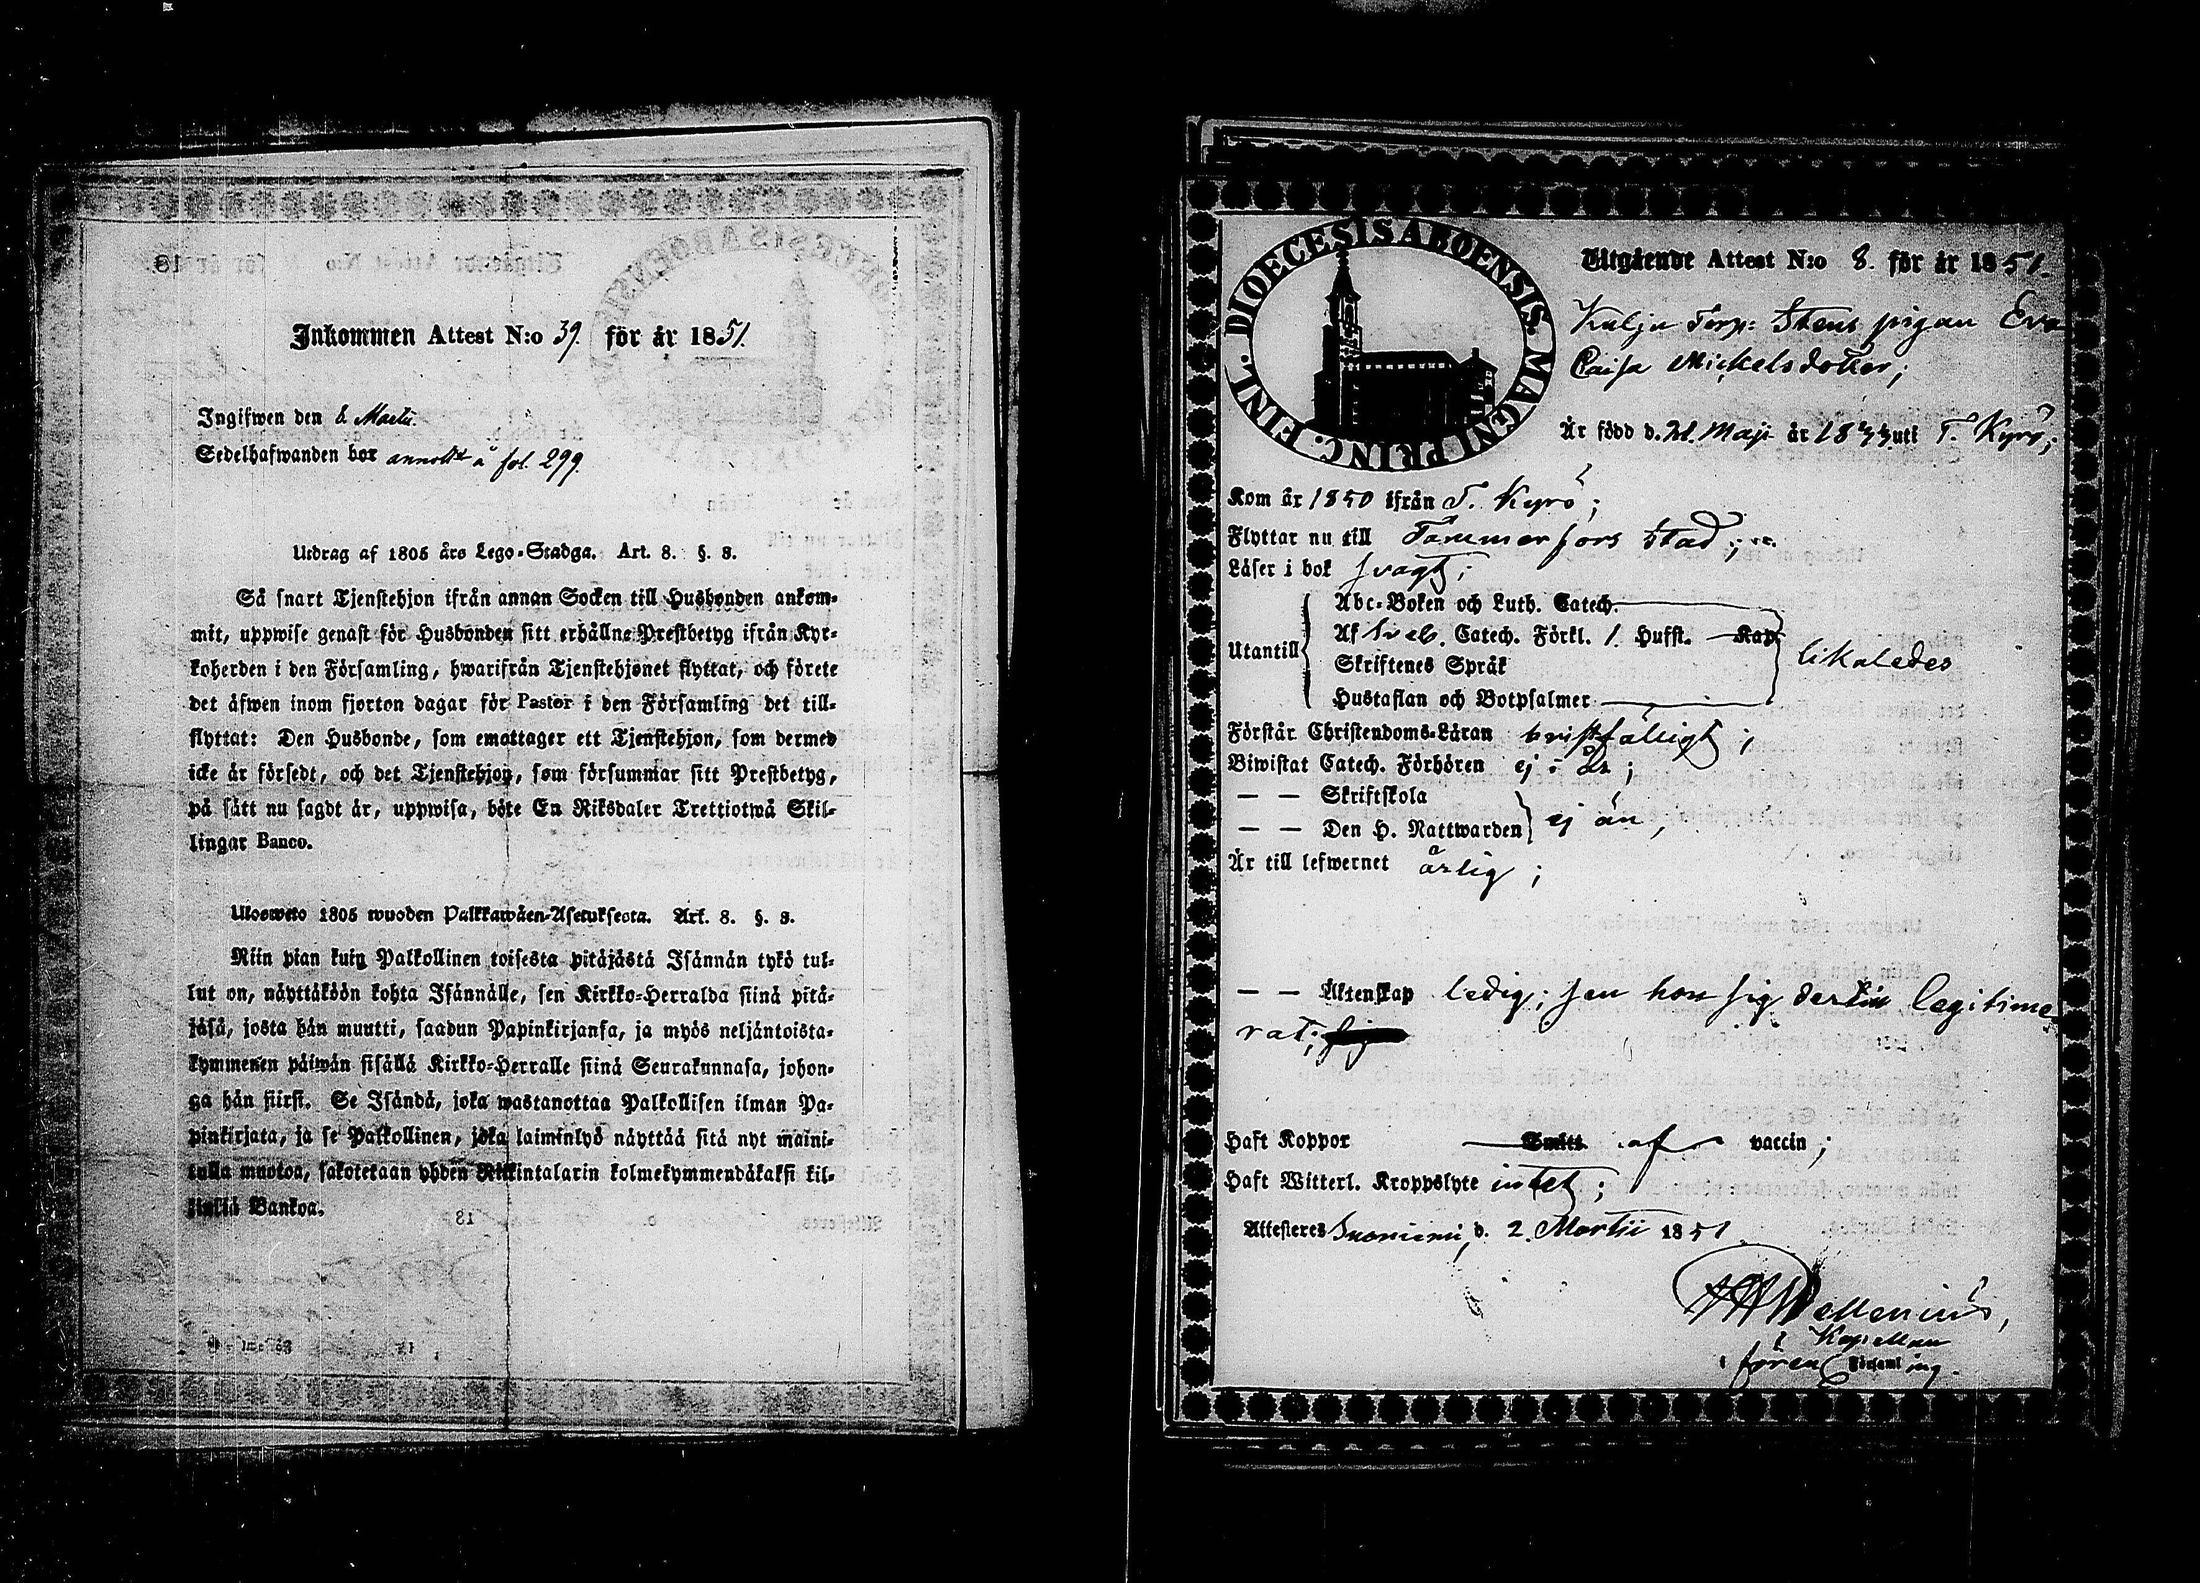 Inkommen Attest N:o 39. för år 1851.
Ingifwen den 8 Martii.
Sedelhafwanden bor annoterad å fol. 299.
Utdrag af 1805 års Lego-Stadga. Art. 8. §. 8.
Så snart Tjenstehjon ifrån annan Socken till Husbonden ankom-
mit, uppwise genast för Husbonden sitt erhållna Prestbetyg ifrån Kyr-
koherden i den Församling, hwarifrån Tjenstehjonet flyttat, och förete
det äfwen inom fjorton dagar för Pastor i den Församling det till-
flyttat: Den Husbonde, som emottager ett Tjenstehjon, som dermed
icke är försedt, och det Tjenstehjon, som försummar sitt Prestbetyg,
på sätt nu sagdt är, uppwisa, böte En Riksdaler Trettiotwå Skil-
lingar Banco.
Uloswето 1805 wuoden Palkkawäen-Asetuksesta. Art. 8. §. 8.
Niin pian kuin Palkollinen toisesta pitäjästä Isännän tykö tul-
lut on, näyttäköön kohta Isännälle, sen Kirkko-Herralda siinä pitä-
jäsä, josta hän muutti, saadun Papinkirjansa, ja myös neljäntoista-
kymmenen päiwän sisällä Kirkko-Herralle siinä Seurakunnasa, johon-
ga hän siirsi. Se Isändä, joka wastanottaa Palkollisen ilman Pa-
pinkirjata, ja se Palkollinen, joka laiminlyö näyttää sitä nyt maini-
tulla muotoa, sakotetaan yhden Riikintalarin kolmekymmendäkaksi kil-
linkiä Bankoa.
DIOECESIS ABOENSIS MAGNI PRINC. FINL.
Utgående Attest N:o 8. för år 1851.
Kulju Torp: Stens pigan Eva
Caisa Mickelsdotter;
Är född d. 21. Maji år 1833 uti T. Kyrö;
Kom år 1850 ifrån T. Kyrö;
Flyttar nu till Tammerfors Stad;
Läser i bok svagt;
Utantill
Abc-Boken och Luth. Catech.
Af Sveb. Catech. Förkl. 1. Hufst. Kap.
Skriftenes Språk
Hustaflan och Botpsalmer
likaledes
Förstår Christendoms-Läran bristfälligt;
Biwistat Catech. Förhören ej i år;
— — Skriftskola
— — Den H. Nattwarden
ej än;
Är till lefwernet ärlig;
— — Äktenskap ledig; sen hon sig dertill legitime-
rat;
Haft Koppor Smitt af vaccin;
Haft Witterl. Kroppslyte intet;
Attesteres Suoniemi, d. 2. Martii 1851
Wellenius,
Kapellan
i fören. Församling.